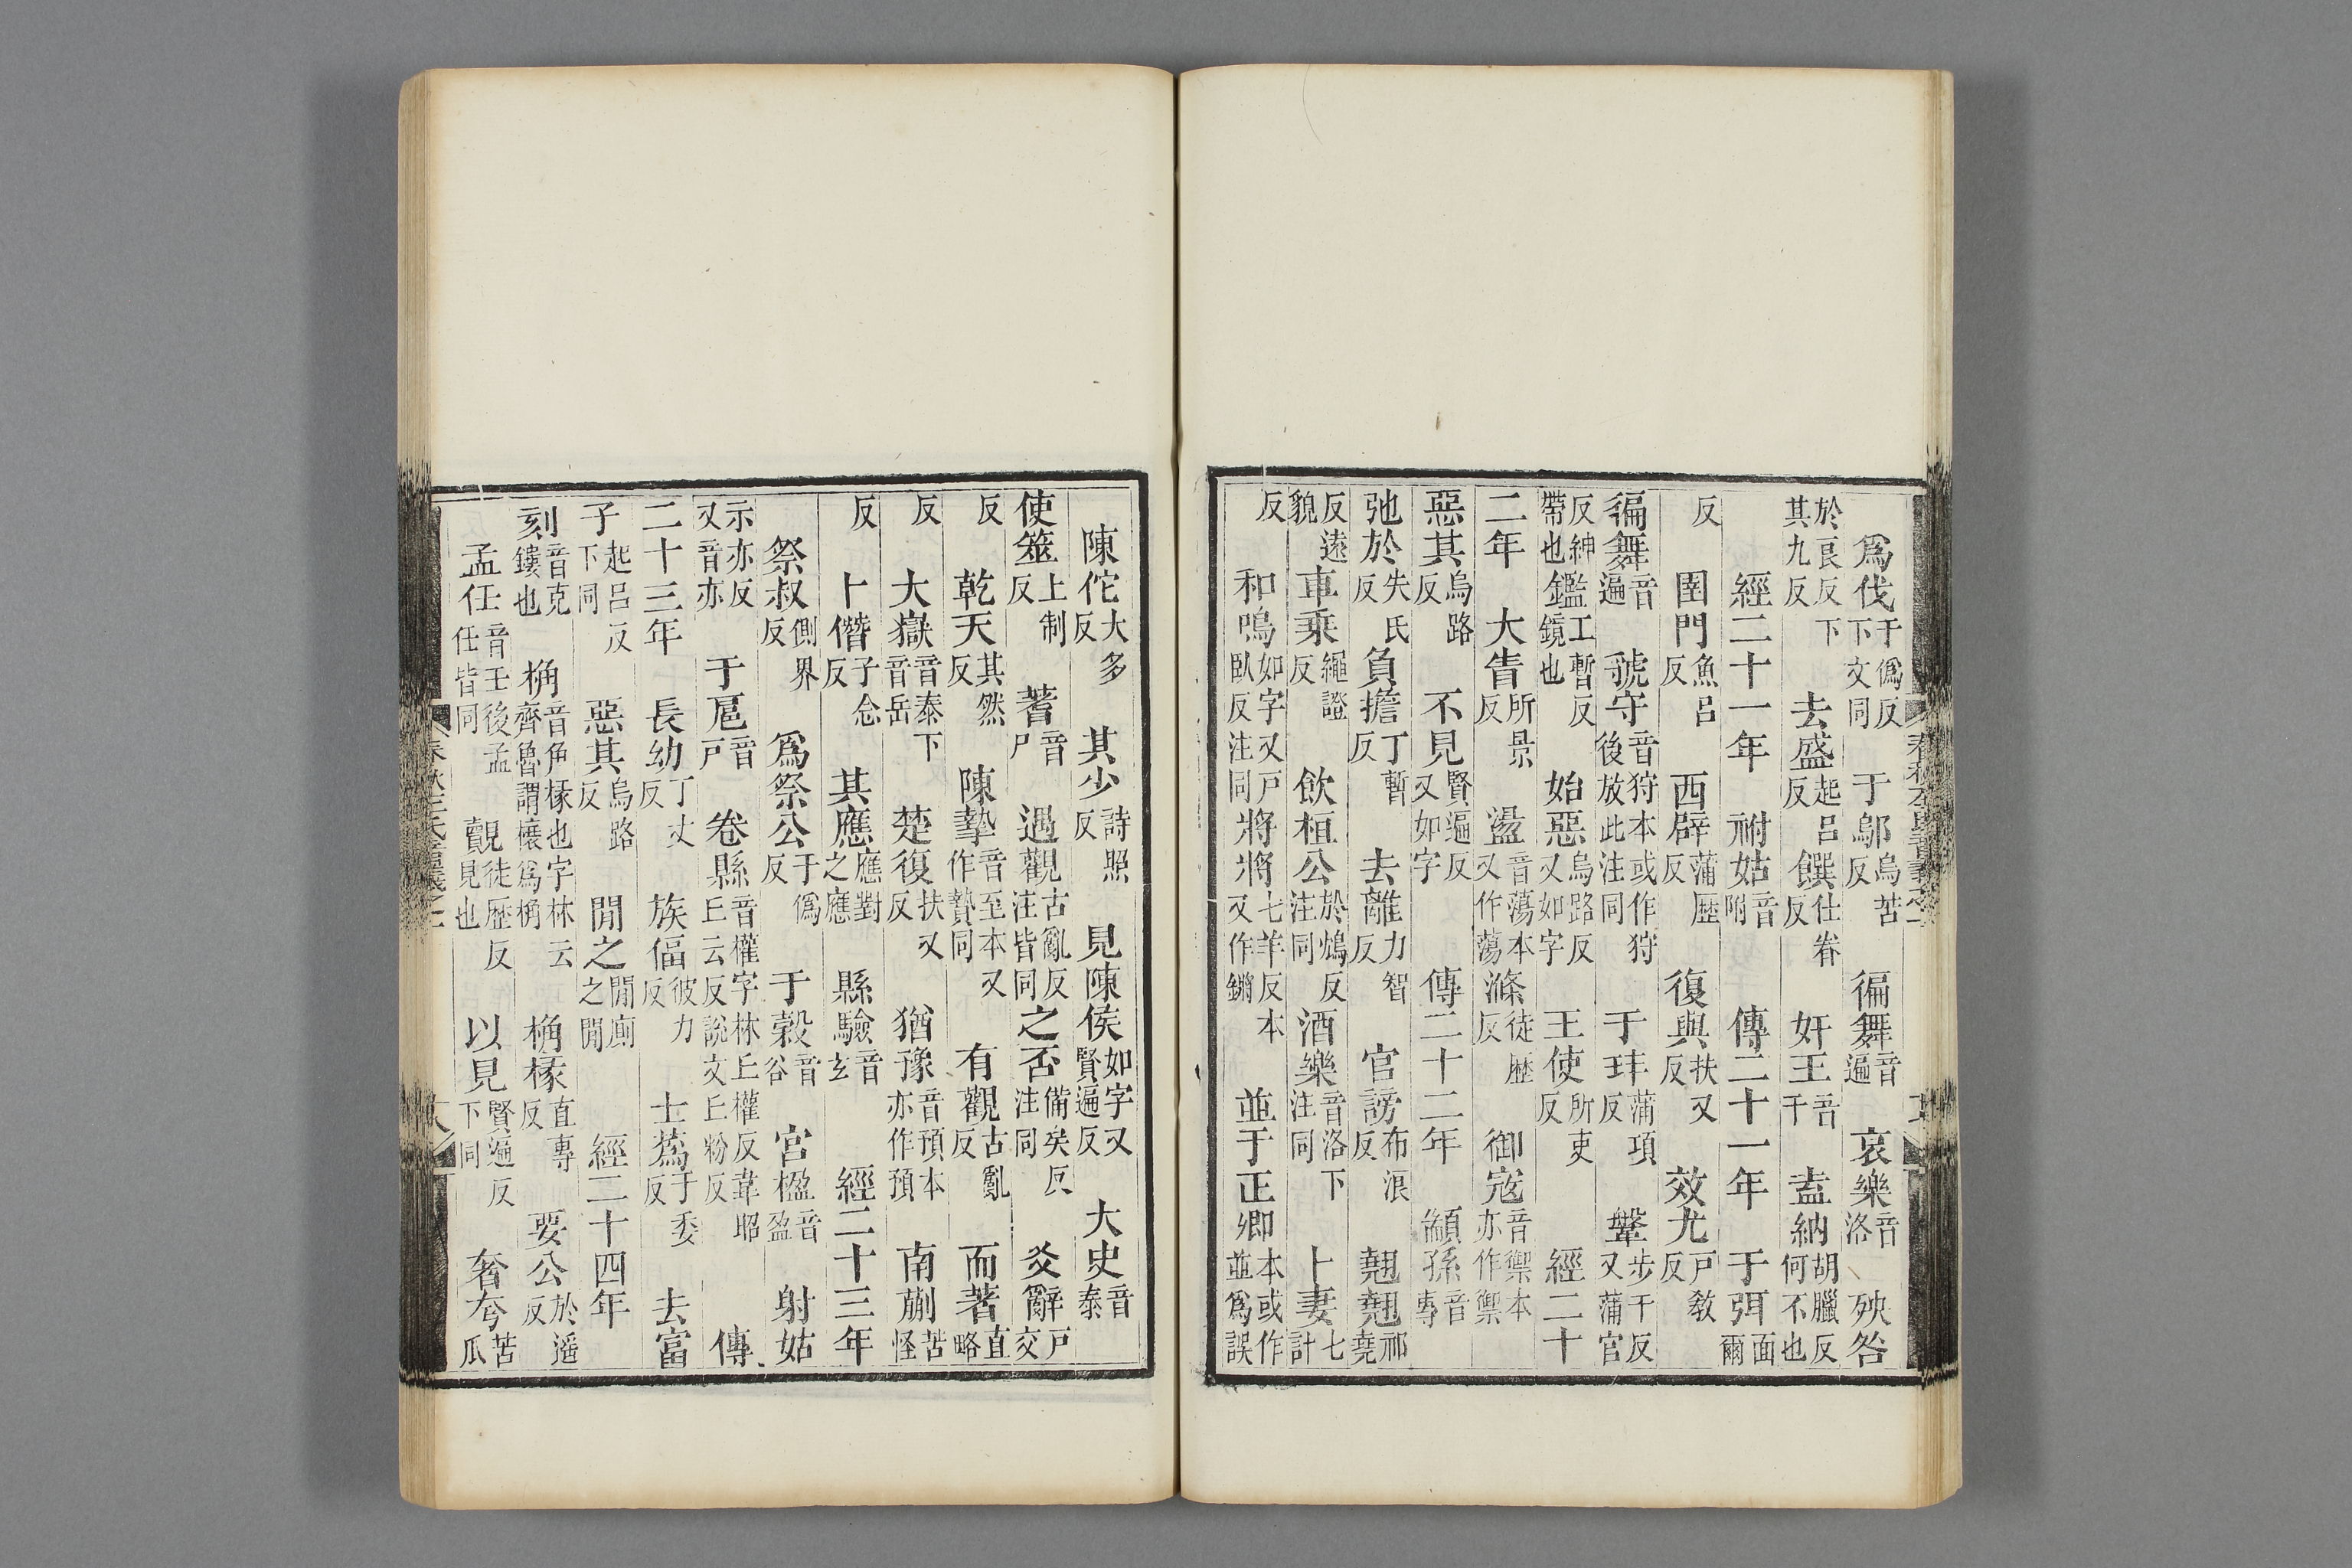 爲伐于僞反下文同 于鄔烏苦反 徧舞音遍 哀樂音洛 殃咎
其九反於良反下 去盛起呂反 饌仕眷反 奸王音干 盍納胡臘反何不也
經二十一年 祔姑音附 傳二十一年 于弭面爾
反 圉門魚呂反 西辟蒲歷反 復與扶又反 效尤戶教反
徧舞音遍 虢守音狩本或作狩後放此注同 于玤蒲項反 鞶步干反又蒲官
反紳帶也 鑑工暫反鏡也 始惡烏路反又如字 王使所吏反 經二十
二年 大眚所景反 盪音蕩本又作蕩 滌徒歷反 御寇音禦本亦作禦
惡其烏路反 不見賢遍反又如字 傳二十二年 顓孫音專
弛於失氏反 負擔丁暫反 去離力智反 官謗布浪反 翹翹祁堯
反遠貌 車乘繩證反 飲桓公於鴆反注同 酒樂音洛下注同 卜妻七計
反 和鳴如字又戶臥反注同 將將七羊反本又作鏘 並于正卿本或作並爲誤
陳佗大多反 其少詩照反 見陳侯如字又賢遍反 大史音泰
使筮上制反 蓍音尸 遇觀古亂反注皆同 之否備矣反注同 爻辭戶交
反 乾天其然反 陳摯音至本又作贄同 有觀古亂反 而著直略
反 大嶽音泰下音岳 楚復扶又反 猶豫音預本亦作預 南蒯苦怪
反 卜僭子念反 其應應對之應 縣驗音玄 經二十三年
祭叔側界反 爲祭公于僞反 于穀音谷 宮楹音盈 射姑
示亦反又音亦 于扈音戶 卷縣音權字林丘權反韋昭丘云反說文丘粉反 傳
二十三年 長幼丁丈反 族偪彼力反 士蔿于委反 去富
子起呂反下同 惡其烏路反 閒之閒廁之閒 經二十四年
刻音克鏤也 桷音角椽也字林云齊魯謂榱爲桷 桷椽直專反 要公於遙反
孟任音壬後孟任皆同 覿徒歷反見也 以見賢遍反下同 奢夸苦瓜